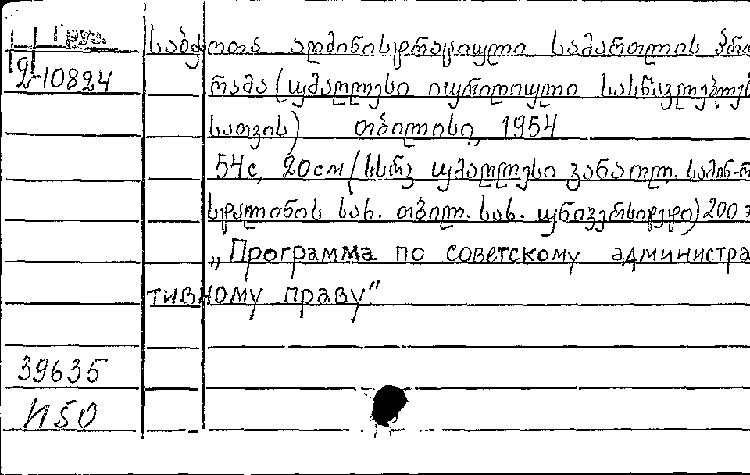 Груз.
საბჭოთა ადმინისტრაციული სამართლის პრო
Ц-10824
რამა (უმაღლესი იურიდიული სასწავლებლებ
სათვის) თბილისი, 1954
54с, 20см (სსრკ უმაღლესი განათლ. სამინ-რ
სტალინის სახ. თბილ. სახ. უნივერსიტეტი) 200 э
„Программа по советскому администра
тивному праву"
39635
И50